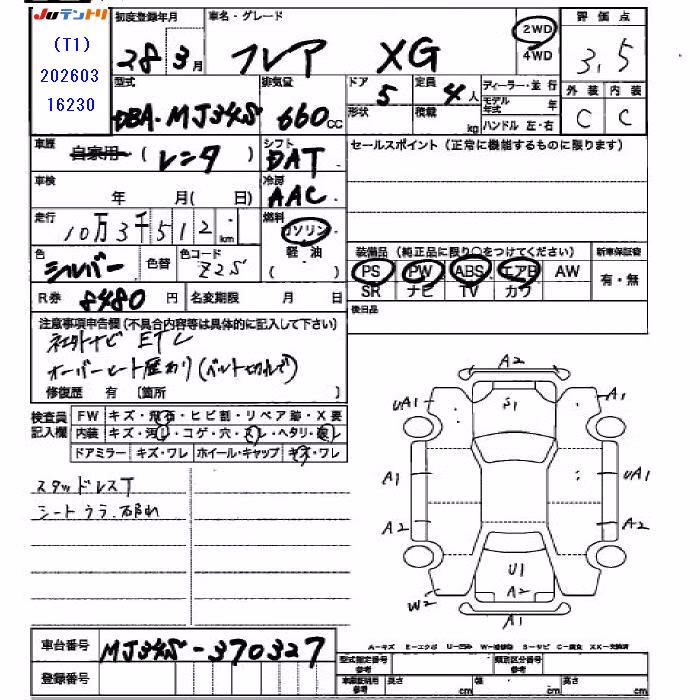 JUテントリ
(T1)
202603
16230
初度登録年月
28 3月
車名・グレード
フレア XG
2WD
4WD
評価点
3.5
型式
DBA-MJ34S
排気量
660cc
ドア 5
形状
定員 4人
積載 kg
ディーラー・並行
モデル年式 年
ハンドル 左・右
外装 内装
C C
車歴
自家用 (レンタ)
シフト
DAT
セールスポイント(正常に機能するものに限ります)
車検
年 月( 日)
冷房
AAC
走行
10万3千512km
燃料
ガソリン
軽油
( )
色
シルバー
色替
色コード
Z2S
装備品(純正品に限り○をつけてください)
新車保証書
PS PW ABS エアB AW
有・無
SR ナビ TV カワ
R券 8480円
名変期限 月 日
後日品
注意事項申告欄(不具合内容等は具体的に記入して下さい)
社外ナビ ETC
オーバーヒート歴有り(ベルト切れで)
修復歴 有 [箇所 ]
検査員記入欄
FW キズ・飛石・ヒビ割・リペア跡・X要
内装 キズ・汚レ・コゲ・穴・スレ・ヘタリ・腐レ
ドアミラー キズ・ワレ ホイール・キャップ キズ・ワレ
スタッドレスT
シートウラ・破れ
A2
UA1
S1
A1
A1
UA1
A2
A2
U1
A2
W2
A1
車台番号
MJ34S-370327
登録番号
A-キズ E-エクボ U-凹み W-補修跡 S-サビ C-腐食 XX-交換済
型式指定番号 参考
類別区分番号 参考
車庫証明用 参考
長さ cm
幅 cm
高さ cm